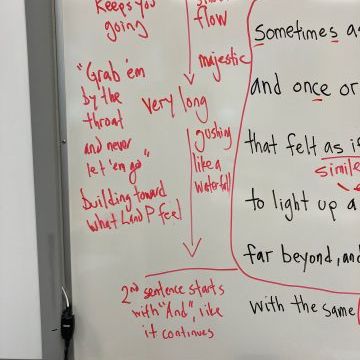 keeps you
going
flow
majestic
"Grab 'em
by the
throat
and never
let 'em go"
very long
gushing
like a
waterfall
building toward
what L and P feel
2nd sentence starts
with "And", like
it continues
Sometimes as
and once or
that felt as if
simile
to light up a
far beyond, and
with the same